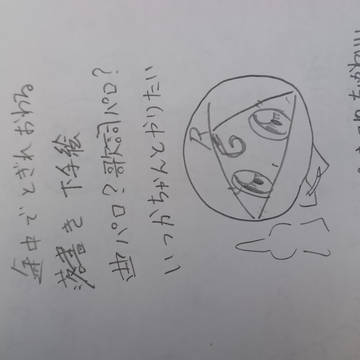 途中でとぎれおわる
落書き 下手絵
曲パロ？歌詞パロ？
いつかちゃんとやりたい
R